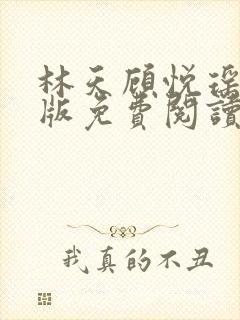 林天顾悦瑶
版免費閱讀
我真的不丑